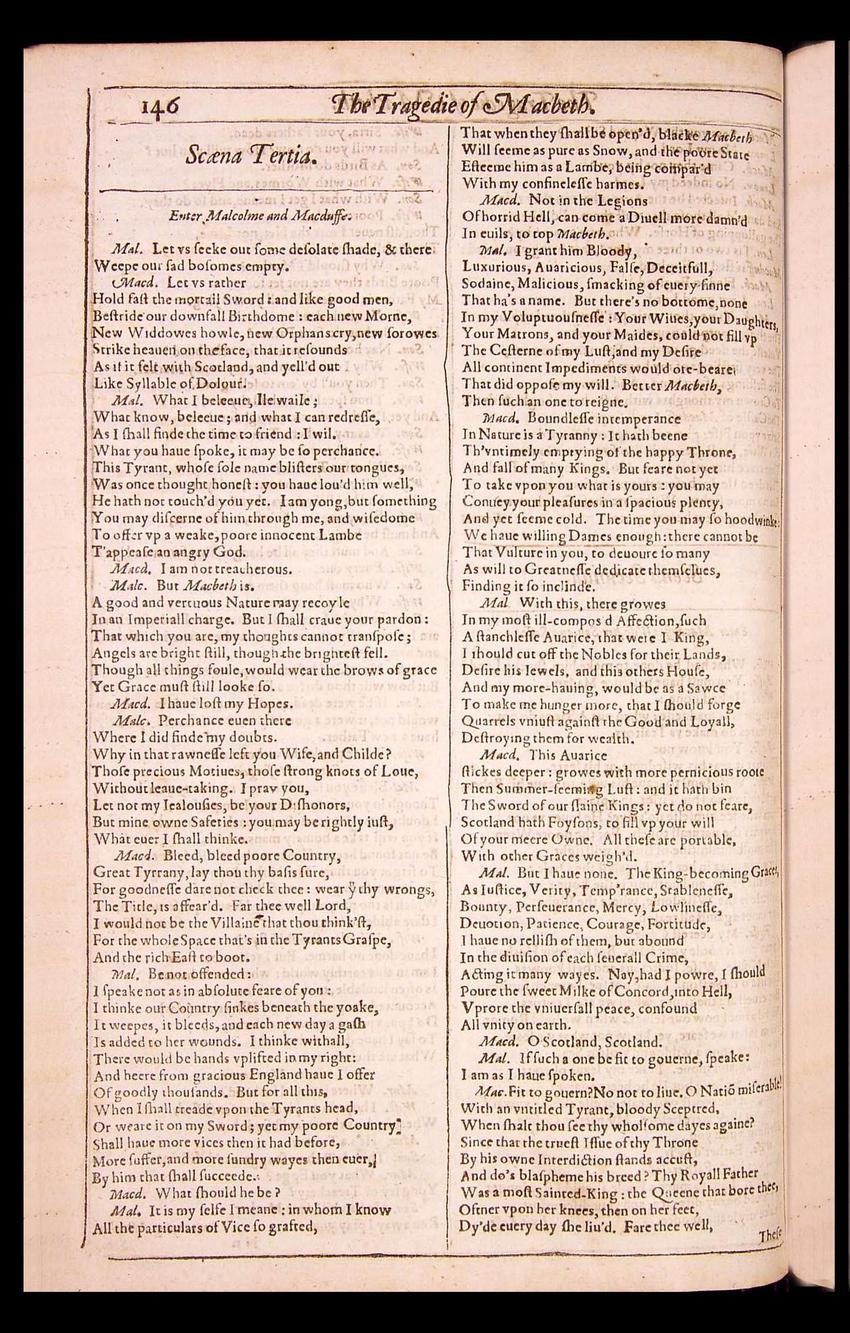 146
The Tragedie of Macbeth.
Scæna Tertia.
Enter Malcolme and Macduffe.
Mal. Let vs ſeeke out ſome deſolate ſhade, & there
Weepe our ſad boſomes empty.
Macd. Let vs rather
Hold faſt the mortall Sword : and like good men,
Beſtride our downfall Birthdome : each new Morne,
New Widdowes howle, new Orphans cry, new ſorowes
Strike heauen on the face, that it reſounds
As if it felt with Scotland, and yell'd out
Like Syllable of Dolour.
Mal. What I beleeue, Ile waile ;
What know, beleeue ; and what I can redreſſe,
As I ſhall finde the time to friend : I wil.
What you haue ſpoke, it may be ſo perchance.
This Tyrant, whoſe ſole name bliſters our tongues,
Was once thought honeſt : you haue lou'd him well,
He hath not touch'd you yet. I am yong, but ſomething
You may diſcerne of him through me, and wiſedome
To offer vp a weake, poore innocent Lambe
T'appeaſe an angry God.
Macd. I am not treacherous.
Malc. But Macbeth is.
A good and vertuous Nature may recoyle
In an Imperiall charge. But I ſhall craue your pardon :
That which you are, my thoughts cannot tranſpoſe ;
Angels are bright ſtill, though the brighteſt fell.
Though all things foule, would wear the brows of grace
Yet Grace muſt ſtill looke ſo.
Macd. I haue loſt my Hopes.
Malc. Perchance euen there
Where I did finde my doubts.
Why in that rawneſſe left you Wife, and Childe?
Thoſe precious Motiues, thoſe ſtrong knots of Loue,
Without leaue-taking. I pray you,
Let not my Iealouſies, be your Diſhonors,
But mine owne Safeties : you may be rightly iuſt,
What euer I ſhall thinke.
Macd. Bleed, bleed poore Country,
Great Tyrrany, lay thou thy baſis ſure,
For goodneſſe dare not check thee : wear ẙ thy wrongs,
The Title, is affear'd. Far thee well Lord,
I would not be the Villaine that thou think'ſt,
For the whole Space that's in the Tyrants Graſpe,
And the rich Eaſt to boot.
Mal. Be not offended :
I ſpeake not as in abſolute feare of you :
I thinke our Country ſinkes beneath the yoake,
It weepes, it bleeds, and each new day a gaſh
Is added to her wounds. I thinke withall,
There would be hands vplifted in my right:
And heere from gracious England haue I offer
Of goodly thouſands. But for all this,
When I ſhall treade vpon the Tyrants head,
Or weare it on my Sword ; yet my poore Country
Shall haue more vices then it had before,
More ſuffer, and more ſundry wayes then euer,
By him that ſhall ſucceede.
Macd. What ſhould he be ?
Mal. It is my ſelfe I meane : in whom I know
All the particulars of Vice ſo grafted,
That when they ſhall be open'd, blacke Macbeth
Will ſeeme as pure as Snow, and the poore State
Eſteeme him as a Lambe, being compar'd
With my confineleſſe harmes.
Macd. Not in the Legions
Of horrid Hell, can come a Diuell more damn'd
In euils, to top Macbeth.
Mal. I grant him Bloody,
Luxurious, Auaricious, Falſe, Deceitfull,
Sodaine, Malicious, ſmacking of euery ſinne
That ha's a name. But there's no bottome, none
In my Voluptuouſneſſe : Your Wiues, your Daughters,
Your Matrons, and your Maides, could not fill vp
The Ceſterne of my Luſt, and my Deſire
All continent Impediments would ore-beare
That did oppoſe my will. Better Macbeth,
Then ſuch an one to reigne.
Macd. Boundleſſe intemperance
In Nature is a Tyranny : It hath beene
Th'vntimely emptying of the happy Throne,
And fall of many Kings. But feare not yet
To take vpon you what is yours : you may
Conuey your pleaſures in a ſpacious plenty,
And yet ſeeme cold. The time you may ſo hoodwinke:
We haue willing Dames enough : there cannot be
That Vulture in you, to deuoure ſo many
As will to Greatneſſe dedicate themſelues,
Finding it ſo inclinde.
Mal. With this, there growes
In my moſt ill-compos'd Affection, ſuch
A ſtanchleſſe Auarice, that were I King,
I ſhould cut off the Nobles for their Lands,
Deſire his Iewels, and this others Houſe,
And my more-hauing, would be as a Sawce
To make me hunger more, that I ſhould forge
Quarrels vniuſt againſt the Good and Loyall,
Deſtroying them for wealth.
Macd. This Auarice
ſtickes deeper : growes with more pernicious roote
Then Summer-ſeeming Luſt : and it hath bin
The Sword of our ſlaine Kings : yet do not feare,
Scotland hath Foyſons, to fill vp your will
Of your meere Owne. All theſe are portable,
With other Graces weigh'd.
Mal. But I haue none. The King-becoming Graces,
As Iuſtice, Verity, Temp'rance, Stableneſſe,
Bounty, Perſeuerance, Mercy, Lowlineſſe,
Deuotion, Patience, Courage, Fortitude,
I haue no relliſh of them, but abound
In the diuiſion of each ſeuerall Crime,
Acting it many wayes. Nay, had I powre, I ſhould
Poure the ſweet Milke of Concord, into Hell,
Vprore the vniuerſall peace, confound
All vnity on earth.
Macd. O Scotland, Scotland.
Mal. If ſuch a one be fit to gouerne, ſpeake:
I am as I haue ſpoken.
Mac. Fit to gouern? No not to liue. O Natiō miſerable!
With an vntitled Tyrant, bloody Sceptred,
When ſhalt thou ſee thy wholſome dayes againe?
Since that the trueſt Iſſue of thy Throne
By his owne Interdiction ſtands accuſt,
And do's blaſpheme his breed ? Thy Royall Father
Was a moſt Sainted-King : the Queene that bore thee,
Oftner vpon her knees, then on her feet,
Dy'de euery day ſhe liu'd. Fare thee well,
Theſe